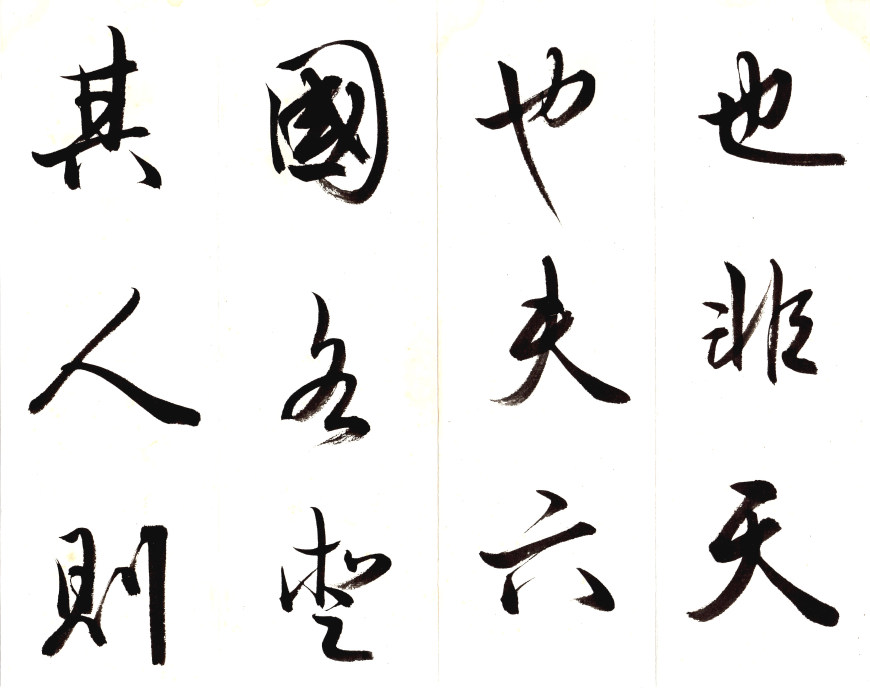 也非天
也夫六
國各愛
其人則